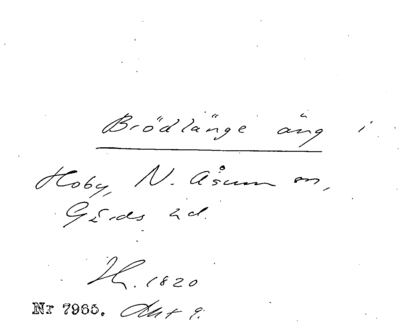 Brödlänge äng i
Hoby, N. Åsum sn,
Gärds hd.
1820
Nr 7985. Akt 9.